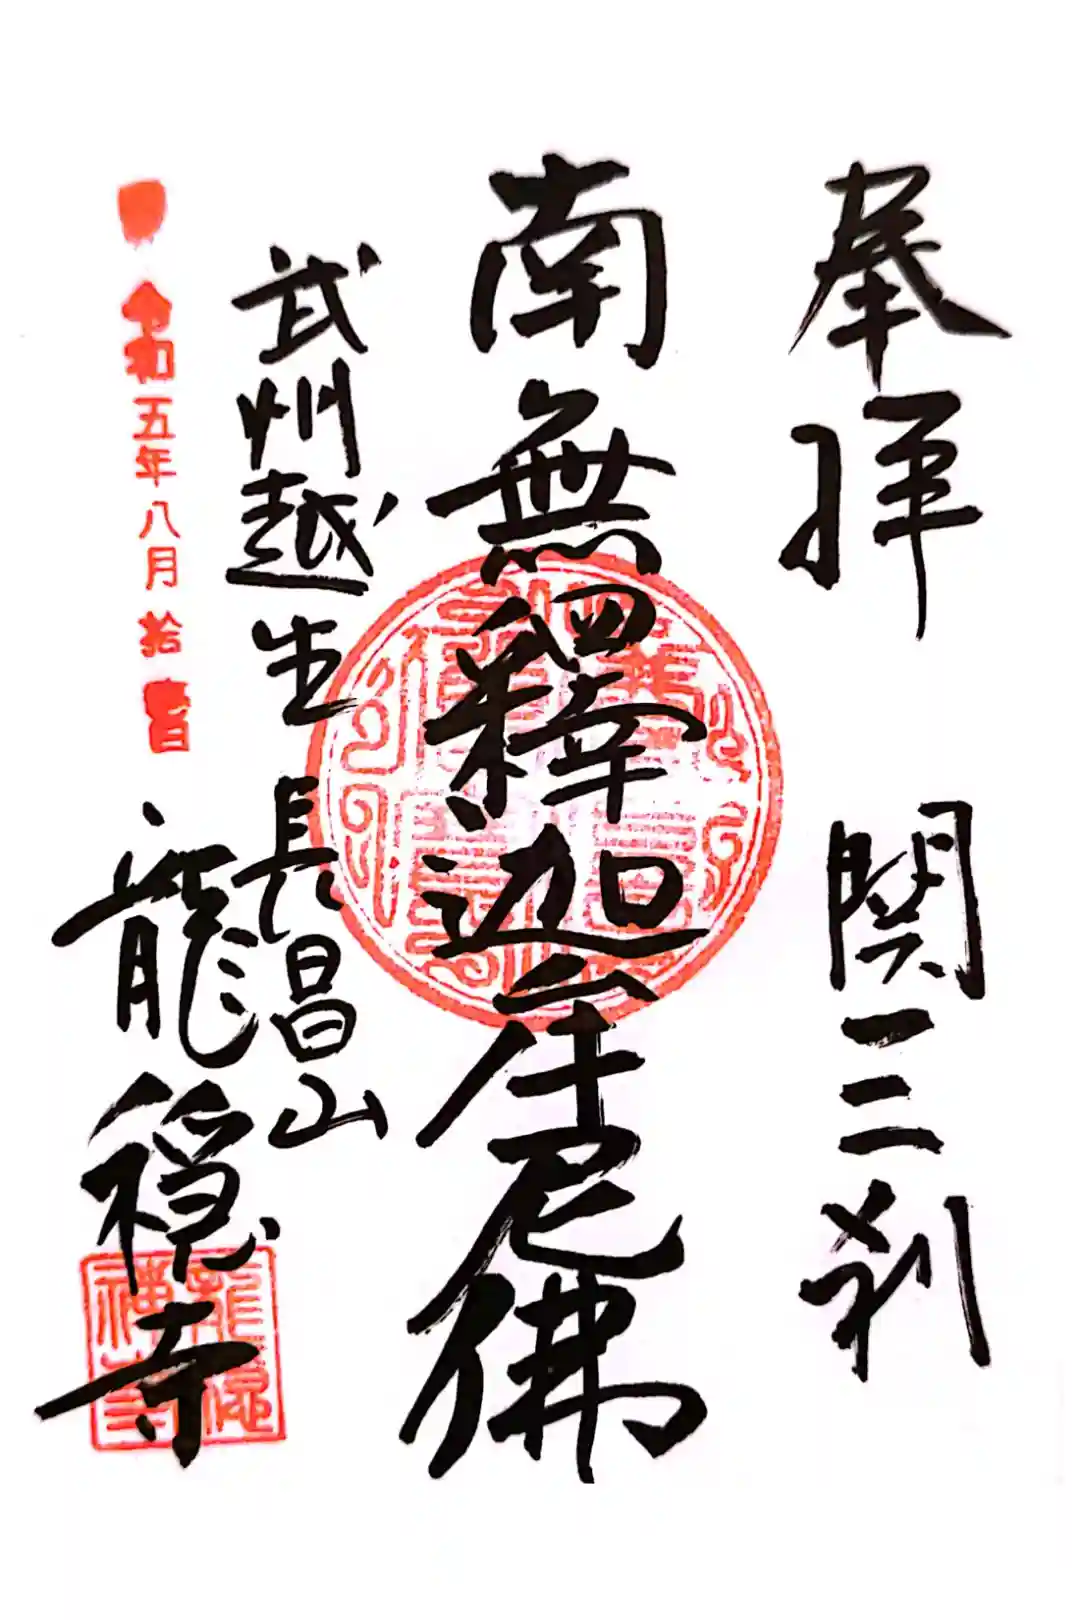 奉拝 関三刹
南無釋迦牟尼佛
武州越生 長昌山
龍穏寺
令和五年八月拾